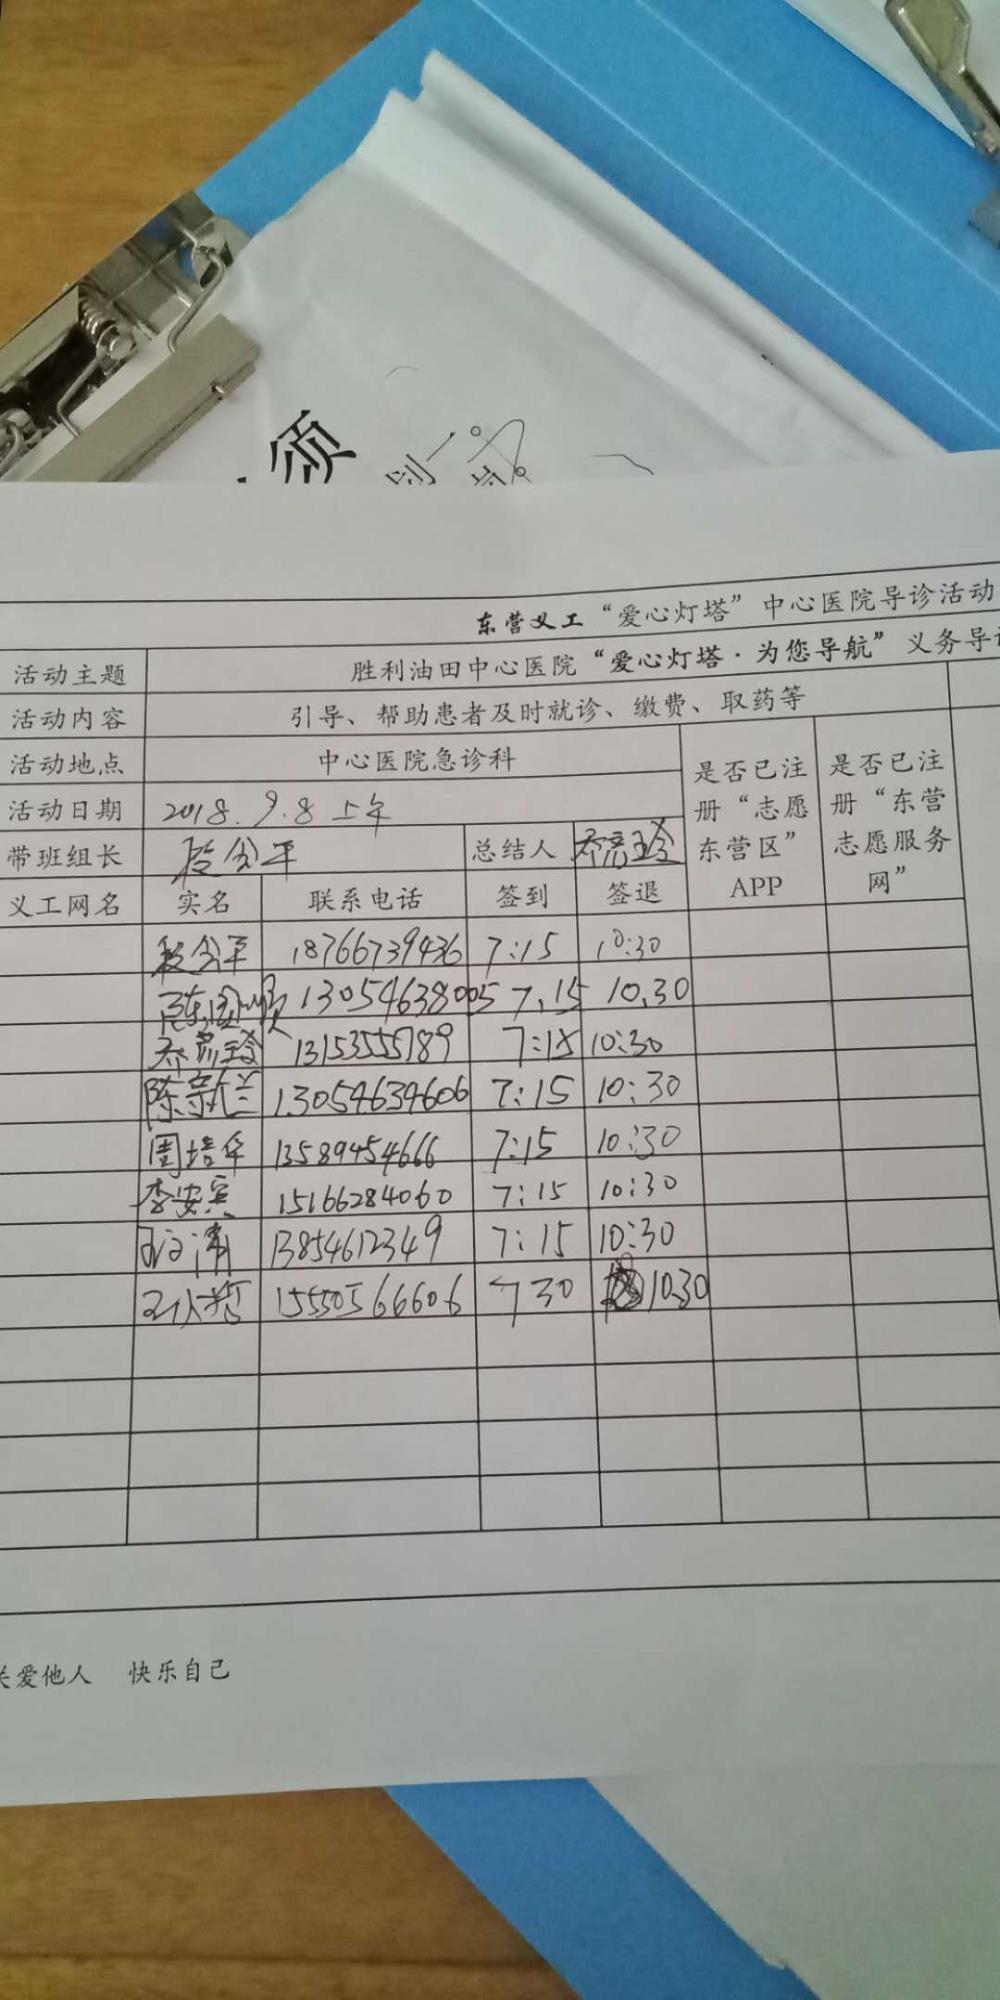 须
东营义工“爱心灯塔”中心医院导诊活动
活动主题 胜利油田中心医院“爱心灯塔·为您导航”义务导
活动内容 引导、帮助患者及时就诊、缴费、取药等
活动地点 中心医院急诊科
活动日期 2018.9.8上午
是否已注册“志愿东营区”APP
是否已注册“东营志愿服务网”
带班组长 段公平 总结人 乔亮玲
义工网名 实名 联系电话 签到 签退
段公平 18766739436 7:15 10:30
陈国顺 13054638005 7,15 10,30
乔亮玲 13153555789 7:15 10:30
陈新兰 13054634606 7:15 10:30
周培华 13589454666 7:15 10:30
李安宾 15166284060 7:15 10:30
13854612349 7:15 10:30
15550566606 7 30 10.30
关爱他人 快乐自己